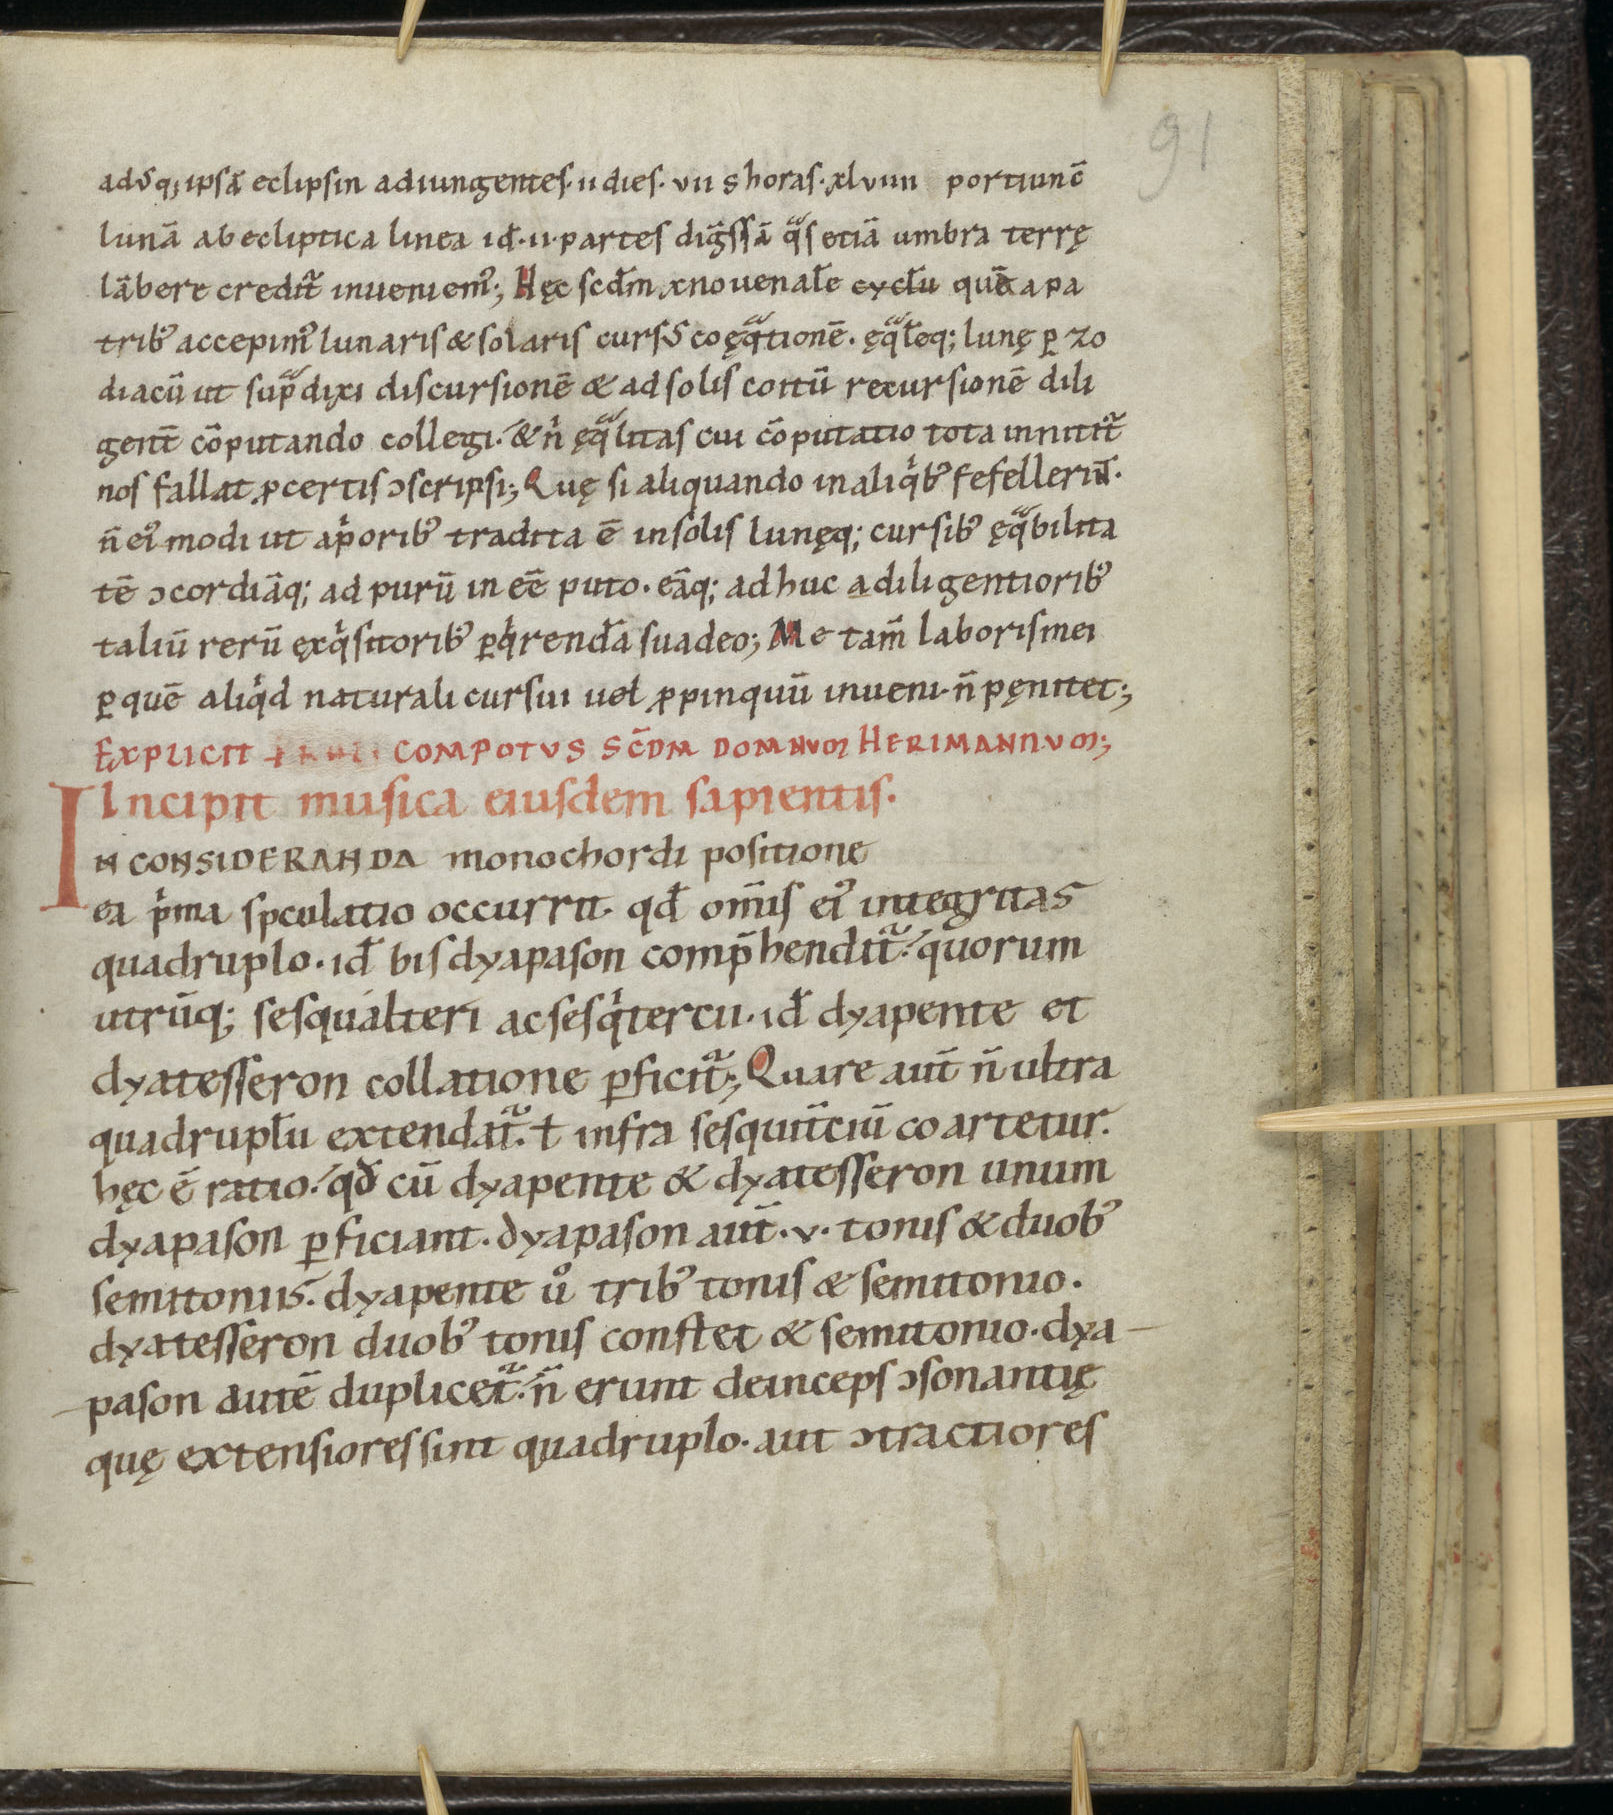 91
adusq; ipsā eclipsin adiungentes· ii dies· vii s horas· xlviiii portiunc̄
lunā ab ecliptica linea id̄· ii· partes digss̄ā qͣs etiā umbra terrę
lābere creditᷣ inueniem᾿; Hęc scd̄m xnouenal̄e cycl̄u quē a pa
trib᾿ accepim᾿ lunaris & solaris cursus coęqͣtionē· ęqͣl̄eq; lunę ꝑ zo
diacū ut supͣ dixi discursionē & ad solis coitū recursionē dili
gent̄ cōputando collegi· & ni ęqͣlitas cui cōputatio tota innititᷣ
nos fallat ꝓ certis ɔscripsi; Quę si aliquando in aliqͥb᾿ fefellerit̄·
n̄ ei᾿modi ut a pͥorib᾿ tradita ē in solis lunęq; cursib᾿ ęqͣbilita
tē ɔcordiāq; ad purū in eē puto· eāq; adhuc a diligentiorib᾿
taliū rerū ęxqͥsitorib᾿ ꝑqͥrend̄a suadeo; Me tam̄ laboris mei
ꝑ quē aliqͥd naturali cursui uel ꝓpinquū inueni· n̄ pęnitet;
Explicit COMPOTVS SC̄DM DOMNVM HERIMANNVM;
Incipit musica eiusdem sapientis.
IN CONSIDERANDA monochordi positione
ea pͥma speculatio occurrit· qd̄ om̄is ei᾿ integritas
quadruplo· id̄ bis dyapason comp̄henditᷣ· quorum
utrūq; sesqualteri ac sesqͥtercii· id̄ dyapente et
dyatesseron collatione ꝑficitᷣ; Quare aut̄ n̄ ultra
quadrupl̄u extendatᷣ· ł infra sesquit̄ciū coartetur.
hęc ē ratio· qd̄ cū dyapente & dyatesseron unum
dyapason ꝑficiant· dyapason aut̄· v· tonis & duob᾿
semitoniis· dyapente uͦ trib᾿ tonis & semitonio·
dyatesseron duob᾿ tonis constet & semitonio· dya
pason autē duplicetᷣ· n̄ erunt deinceps ɔsonantię
quę extensiores sint quadruplo· aut ɔtractiores